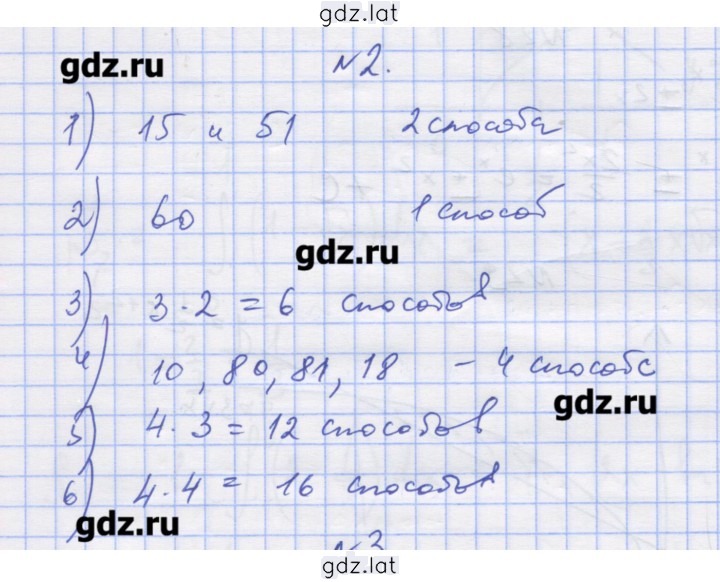 gdz.lat
gdz.ru
№2.
1) 15 и 51 2 способа
2) 60 1 способ
gdz.ru
3) 3·2 = 6 способов
4) 10, 80, 81, 18 – 4 способа
gdz.ru
5) 4·3 = 12 способов
6) 4·4 = 16 способов
gdz.ru
№3
gdz.lat